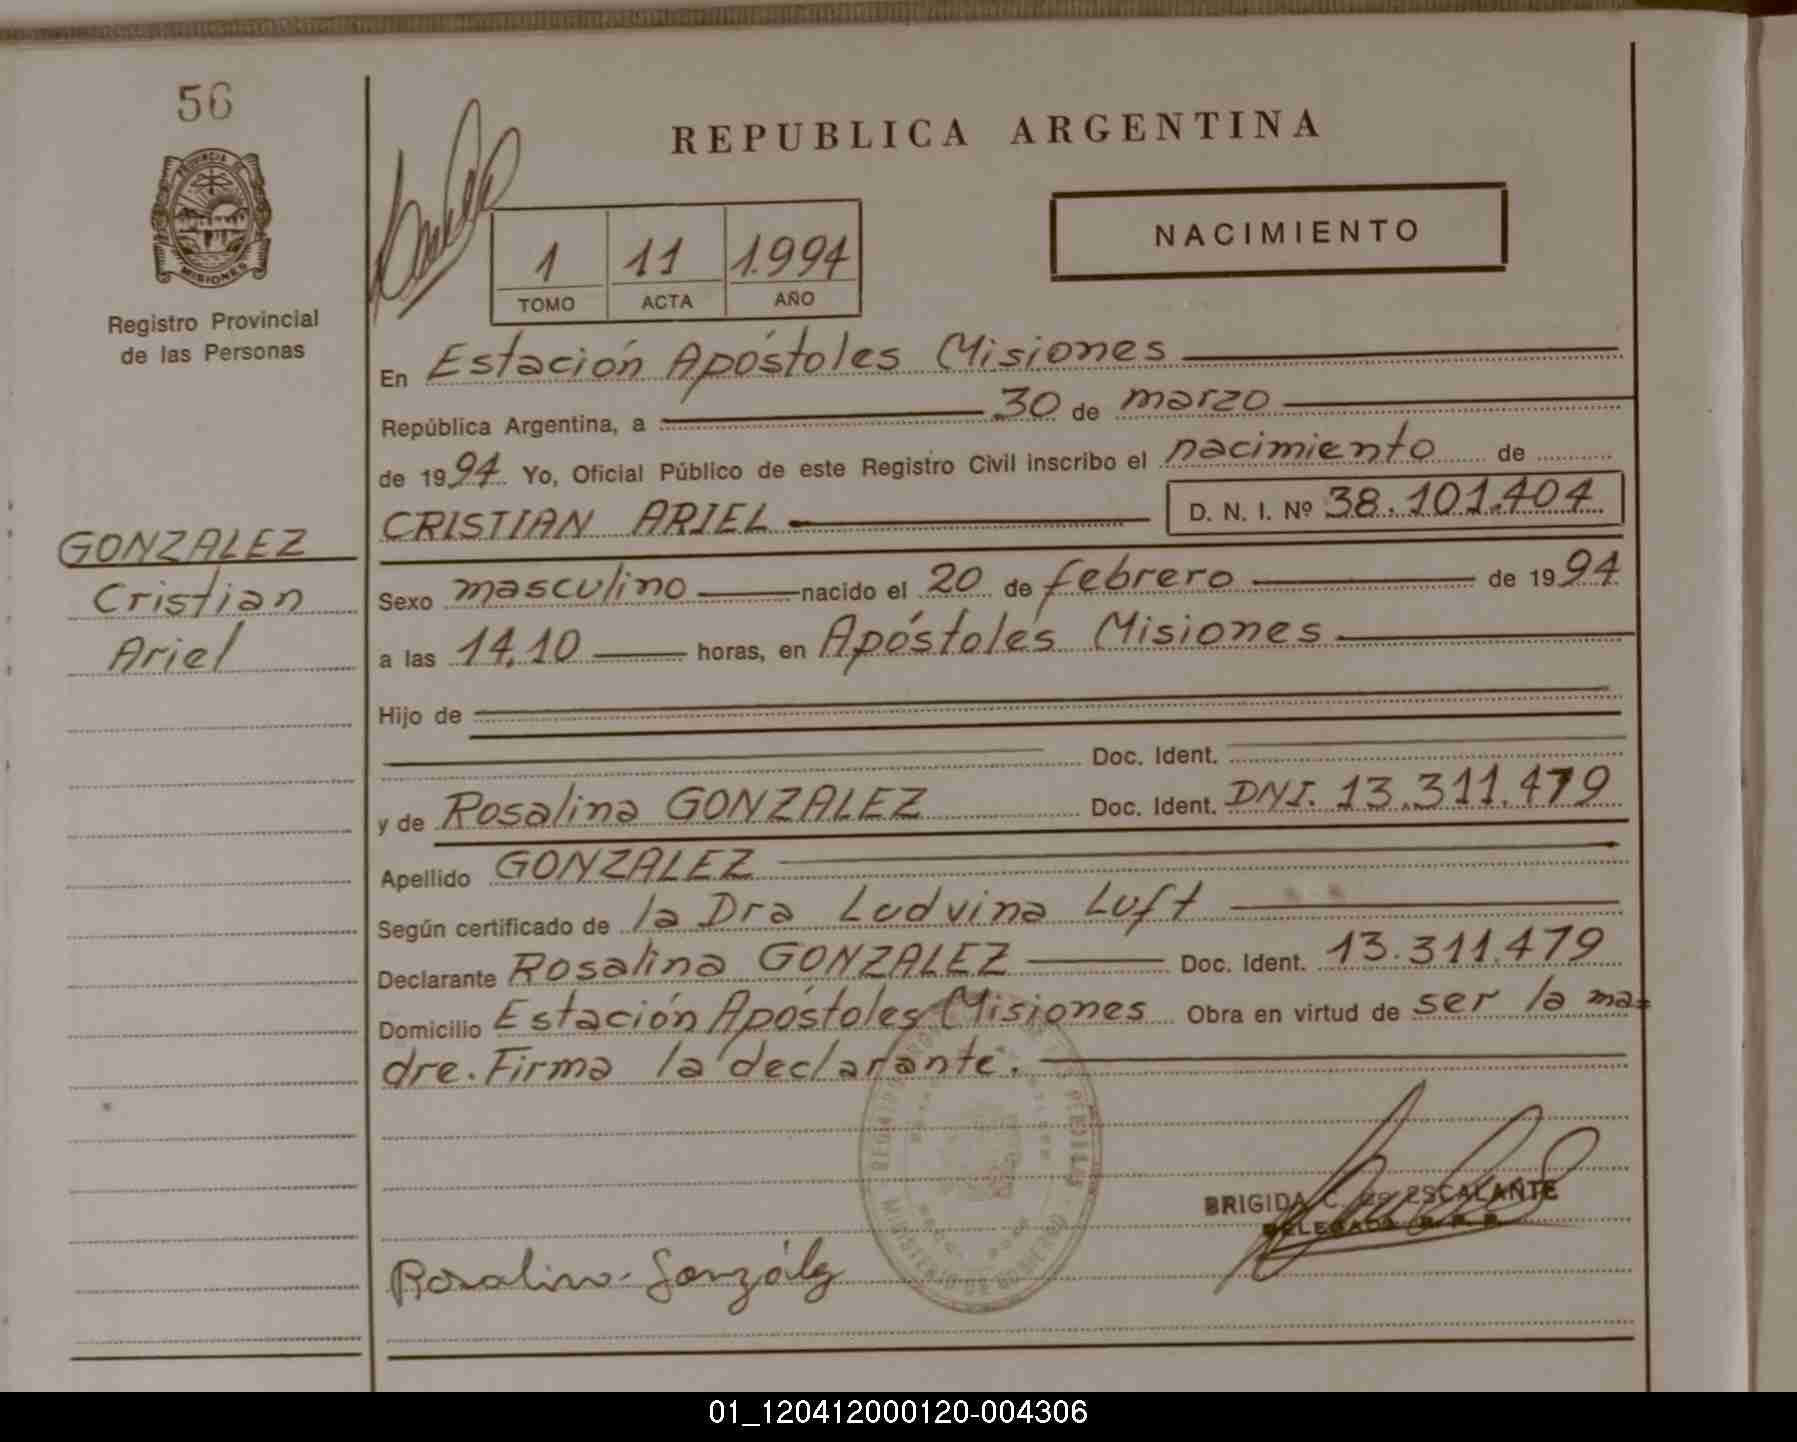 56
REPUBLICA ARGENTINA
PROVINCIA DE
MISIONES
Registro Provincial
de las Personas
1 11 1.994
TOMO ACTA AÑO
NACIMIENTO
En Estación Apóstoles Misiones
República Argentina, a 30 de marzo
de 1994 Yo, Oficial Público de este Registro Civil inscribo el nacimiento de
CRISTIAN ARIEL D. N. I. Nº 38.101.404
GONZALEZ
Cristian
Ariel
Sexo masculino nacido el 20 de febrero de 1994
a las 14,10 horas, en Apóstoles Misiones
Hijo de
Doc. Ident.
y de Rosalina GONZALEZ Doc. Ident. DNI. 13.311.479
Apellido GONZALEZ
Según certificado de la Dra Ludvina Luft
Declarante Rosalina GONZALEZ Doc. Ident. 13.311.479
Domicilio Estación Apóstoles Misiones Obra en virtud de ser la ma=
dre. Firma la declarante.
MINISTERIO DE GOBIERNO
BRIGIDA C. de ESCALANTE
DELEGADA R. P. P.
Rosalina González
01_120412000120-004306